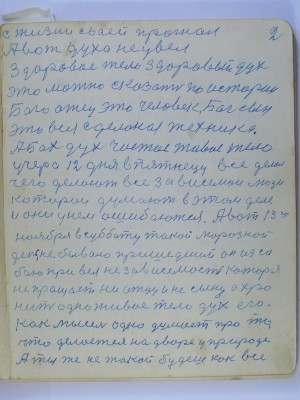 2
с жизни своей прожал
А вот духа не увел
Здоровое тело здоровый дух
это можно сказать по истории
Бог отец это человек, Бог сын
это вся сделаная техника.
А Бог дух чистое живое тело
учера 12 дня в пятнецу все делал
чего делают все зависемои люди
которои думают в этом деле
и они у нем ошибаются. А вот 13го
ноября в субботу такой морозной
ден, не бывало пришедший он из со
бою привел не зависемость которая
не прашает ни отцу и не сыну а хро
нит одно живое тело дух его.
Как мысел одно думает про то,
что делается на дворе у природе
А ты же не такой будеш как все